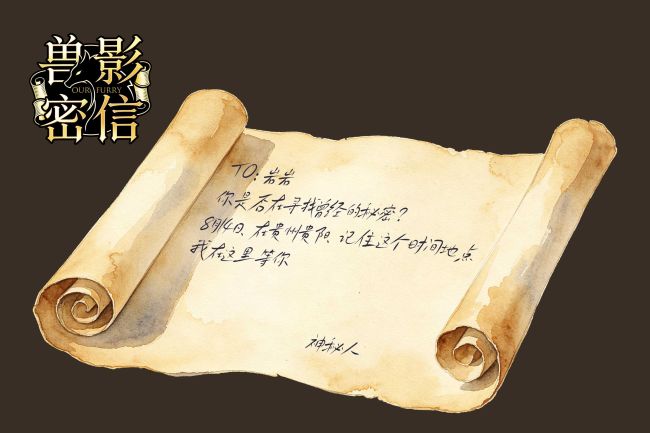 兽影
OUR FURRY
密信
TO:岩岩
你是否在寻找曾经的秘密?
8月4日,在贵州贵阳,记住这个时间地点
我在这里等你
神秘人